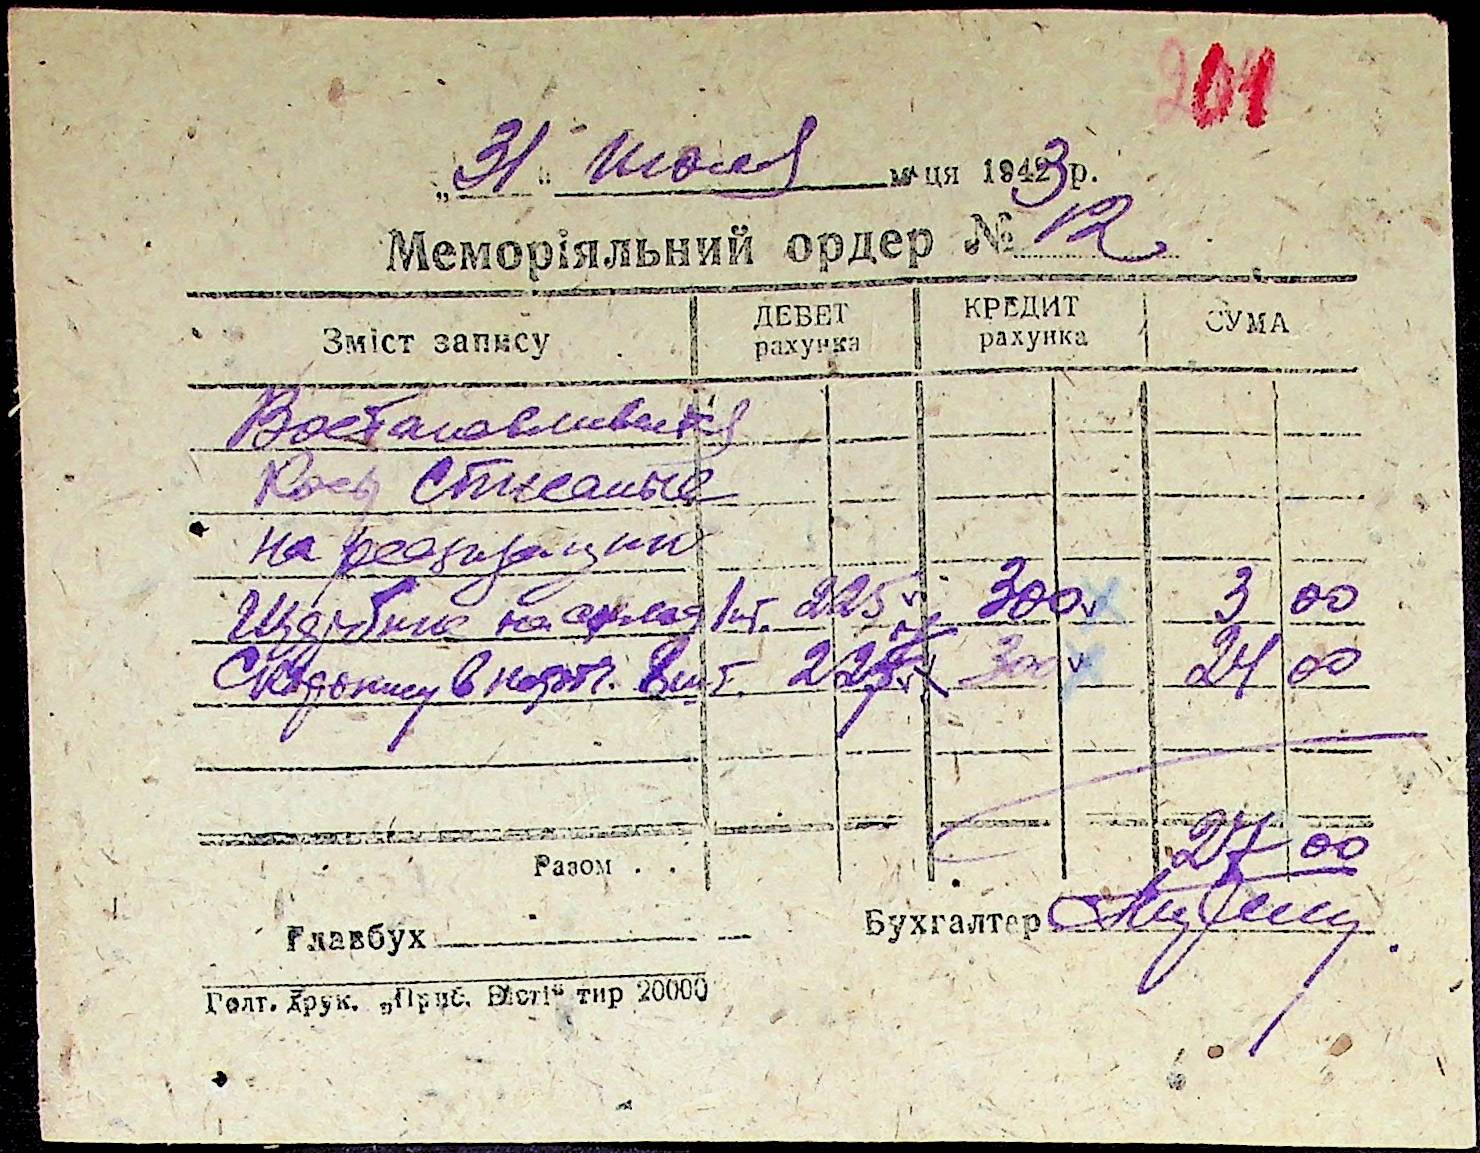 201
„31“ июля м-ця 1943 р.
Меморіяльний ордер № 12
Зміст запису ДЕБЕТ рахунка КРЕДИТ рахунка СУМА
Востановливается
Косы
на
на склад 1 шт. 225 300 3 00
в 8 шт. 225 300 24 00
27 00
Разом . .
Главбух Бухгалтер
Голт. друк. „Приб. Вісті“ тир 20000